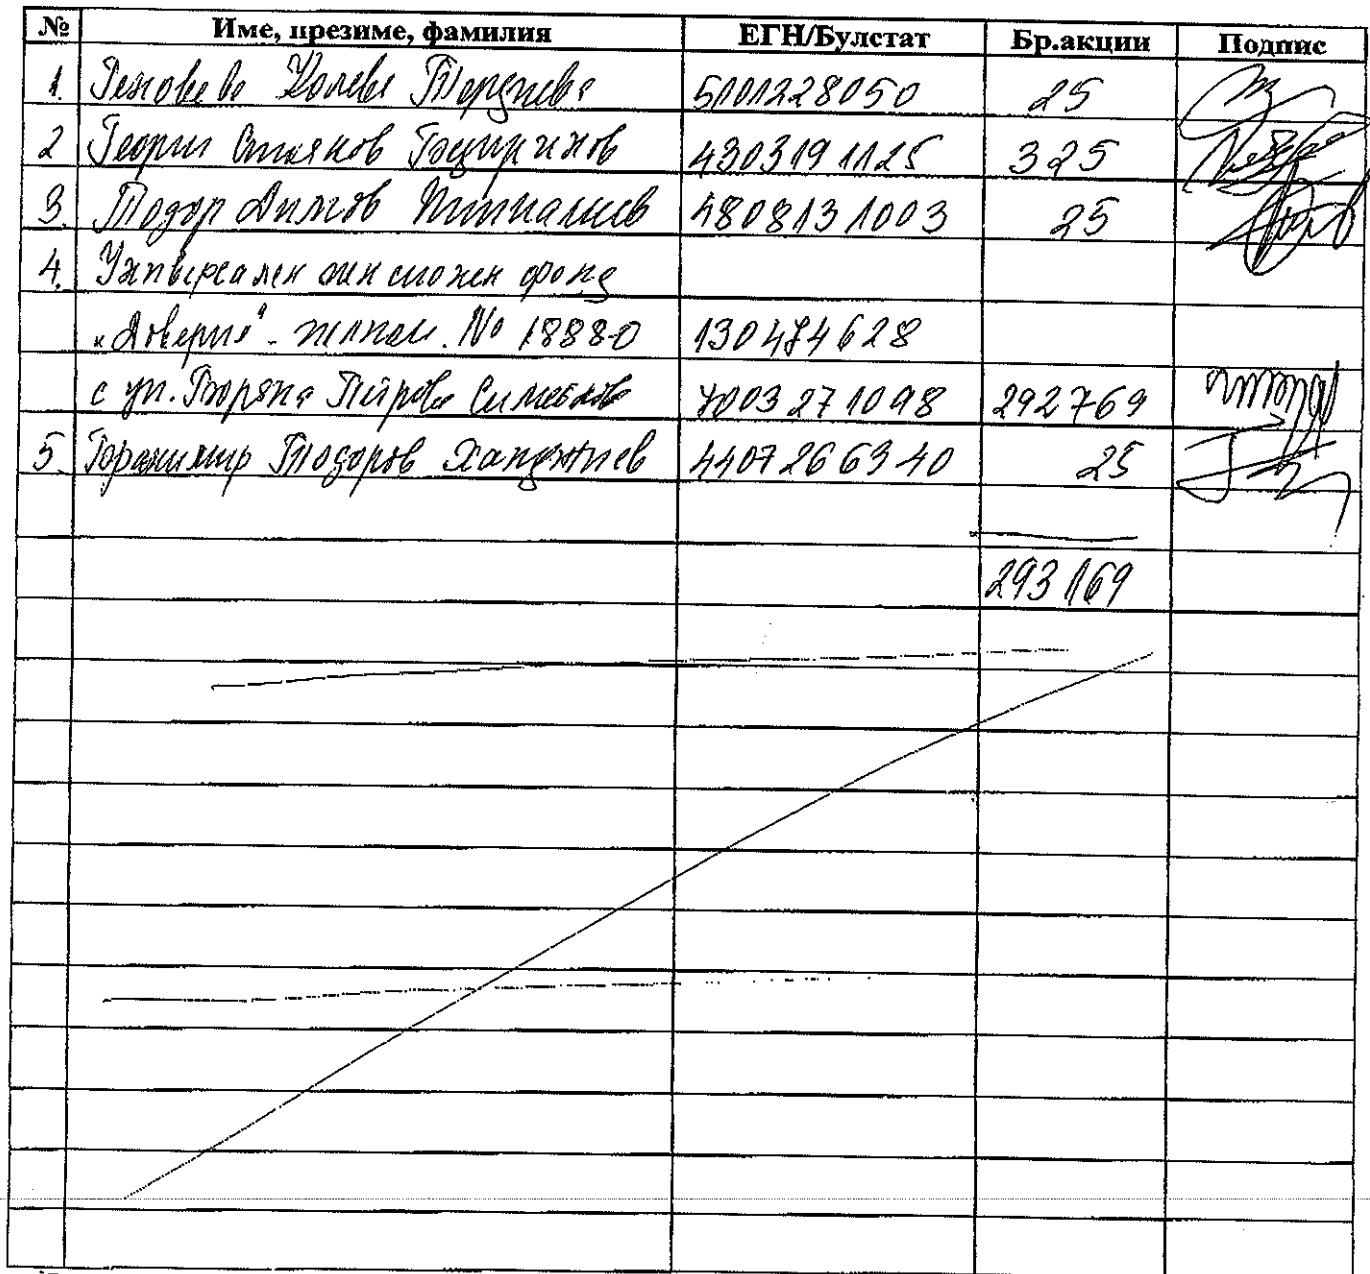 № Име, презиме, фамилия ЕГН/Булстат Бр.акции Подпис
1. Геновева Колева 5101228050 25
2 Георги Стоянов 4303191125 325
3. Тодор Димов 4808131003 25
4. Универсален пенсионен фонд
"Доверие" - пълном. № 18880 130484628
с уп. Боряна Петрова Симеонова 7003271098 292769
5. Бранимир Тодоров Ханджиев 4407266340 25
293169